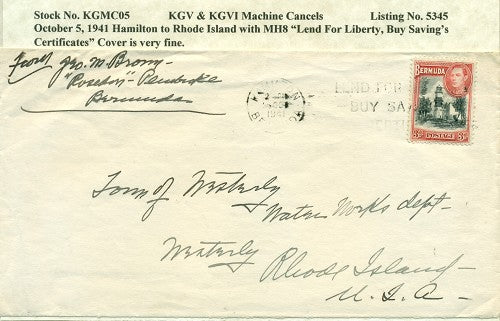 Stock No. KGMC05 KGV & KGVI Machine Cancels Listing No. 5345
October 5, 1941 Hamilton to Rhode Island with MH8 “Lend For Liberty, Buy Saving's
Certificates” Cover is very fine.
From
Geo. M.
Pembroke
Bermuda
1941
LEND FOR
BUY SA
BERMUDA
POSTAGE
3d 3d
Town of Westerly
Water Works dept.
Westerly
Rhode Island
U.S.A.